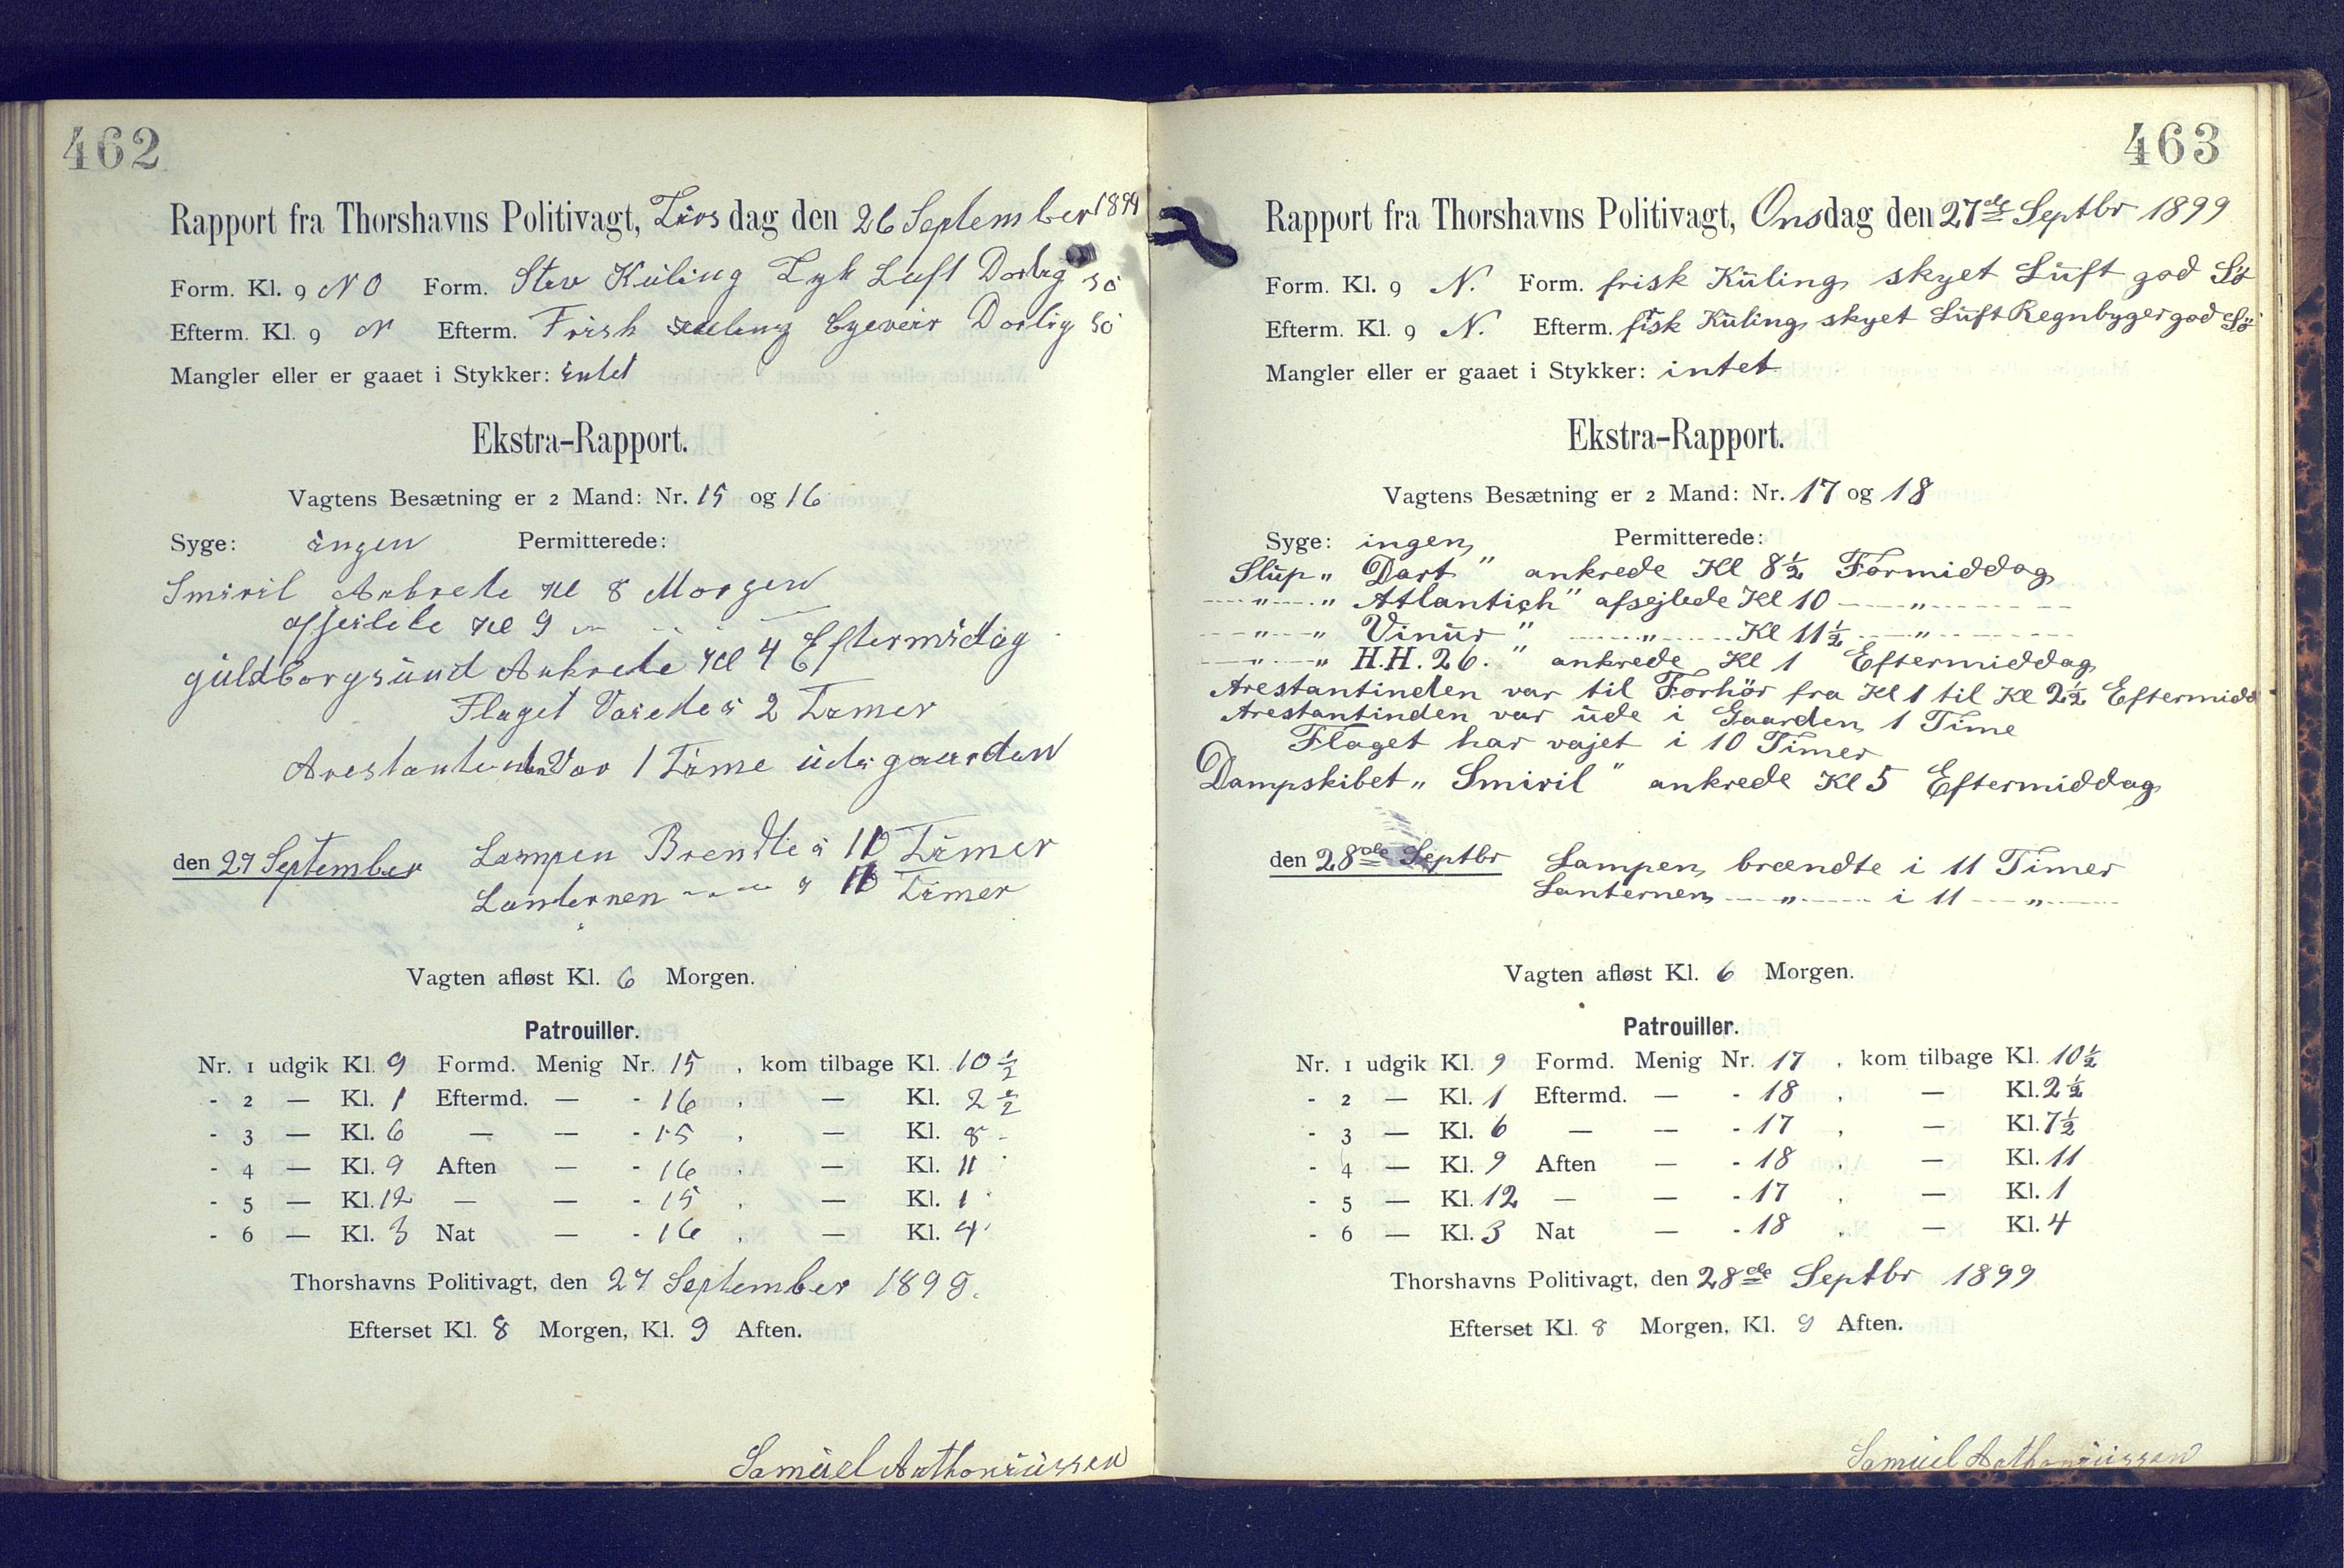 462
Rapport fra Thorshavns Politivagt, Tirsdag den 26 September 1899
Form. Kl. 9 NO Form. Stiv Kuling Tyk Luft Dorlig Sö
Efterm. Kl. 9 N Efterm. Frish Kuling Byeveir Dorlig Sö
Mangler eller er gaaet i Stykker: intet
Ekstra-Rapport.
Vagtens Besætning er 2 Mand: Nr. 15 og 16
Syge: ingen Permitterede:
Smiril Ankrete Kl 8 Morgen
afseilete Kl 9 — " —
güldborgsünd Ankrete Kl 4 Eftermidag
Flaget Vaiede i 2 Timer
Arestantinden Var 1 Time üde i gaarden
den 27 September Lampen Brendte i 10 Timer
Lanternen — " — i 10 Timer
Vagten afløst Kl. 6 Morgen.
Patrouiller.
Nr. 1 udgik Kl. 9 Formd. Menig Nr. 15, kom tilbage Kl. 10 1/2
- 2 — Kl. 1 Eftermd. — - 16, — Kl. 2 1/2
- 3 — Kl. 6 — — - 15, — Kl. 8
- 4 — Kl. 9 Aften — - 16, — Kl. 11
- 5 — Kl. 12 — — - 15, — Kl. 1
- 6 — Kl. 3 Nat — - 16, — Kl. 4
Thorshavns Politivagt, den 27 September 1899.
Efterset Kl. 8 Morgen, Kl. 9 Aften.
Samüel Anthoniüssen
463
Rapport fra Thorshavns Politivagt, Onsdag den 27de Septbr 1899
Form. Kl. 9 N. Form. frisk Küling skyet Lüft god Sö
Efterm. Kl. 9 N. Efterm. fisk Küling skyet Lüft Regnbyger god Sö
Mangler eller er gaaet i Stykker: intet
Ekstra-Rapport.
Vagtens Besætning er 2 Mand: Nr. 17 og 18
Syge: ingen Permitterede:
Slüp „ Dart " ankrede Kl 8½ Formiddag
— " — „ Atlantich " afsejlede Kl 10 — " —
— " — „ Vinür " — " — Kl 11½ — " —
— " — „ H.H. 26. " ankrede Kl 1 Eftermiddag
Arestantinden var til Forhör fra Kl 1 til Kl 2½ Eftermidd
Arestantinden var üde i Gaarden 1 Time
Flaget har vajet i 10 Timer
Dampskibet „ Smiril " ankrede Kl 5 Eftermiddag
den 28de Septbr Lampen brændte i 11 Timer
Lanternen — " — i 11 — " —
Vagten afløst Kl. 6 Morgen.
Patrouiller.
Nr. 1 udgik Kl. 9 Formd. Menig Nr. 17, kom tilbage Kl. 10½
- 2 — Kl. 1 Eftermd. — - 18, — Kl. 2½
- 3 — Kl. 6 — — - 17, — Kl. 7½
- 4 — Kl. 9 Aften — - 18, — Kl. 11
- 5 — Kl. 12 — — - 17, — Kl. 1
- 6 — Kl. 3 Nat — - 18, — Kl. 4
Thorshavns Politivagt, den 28de Septbr 1899
Efterset Kl. 8 Morgen, Kl. 9 Aften.
Samüel Anthoniüssen